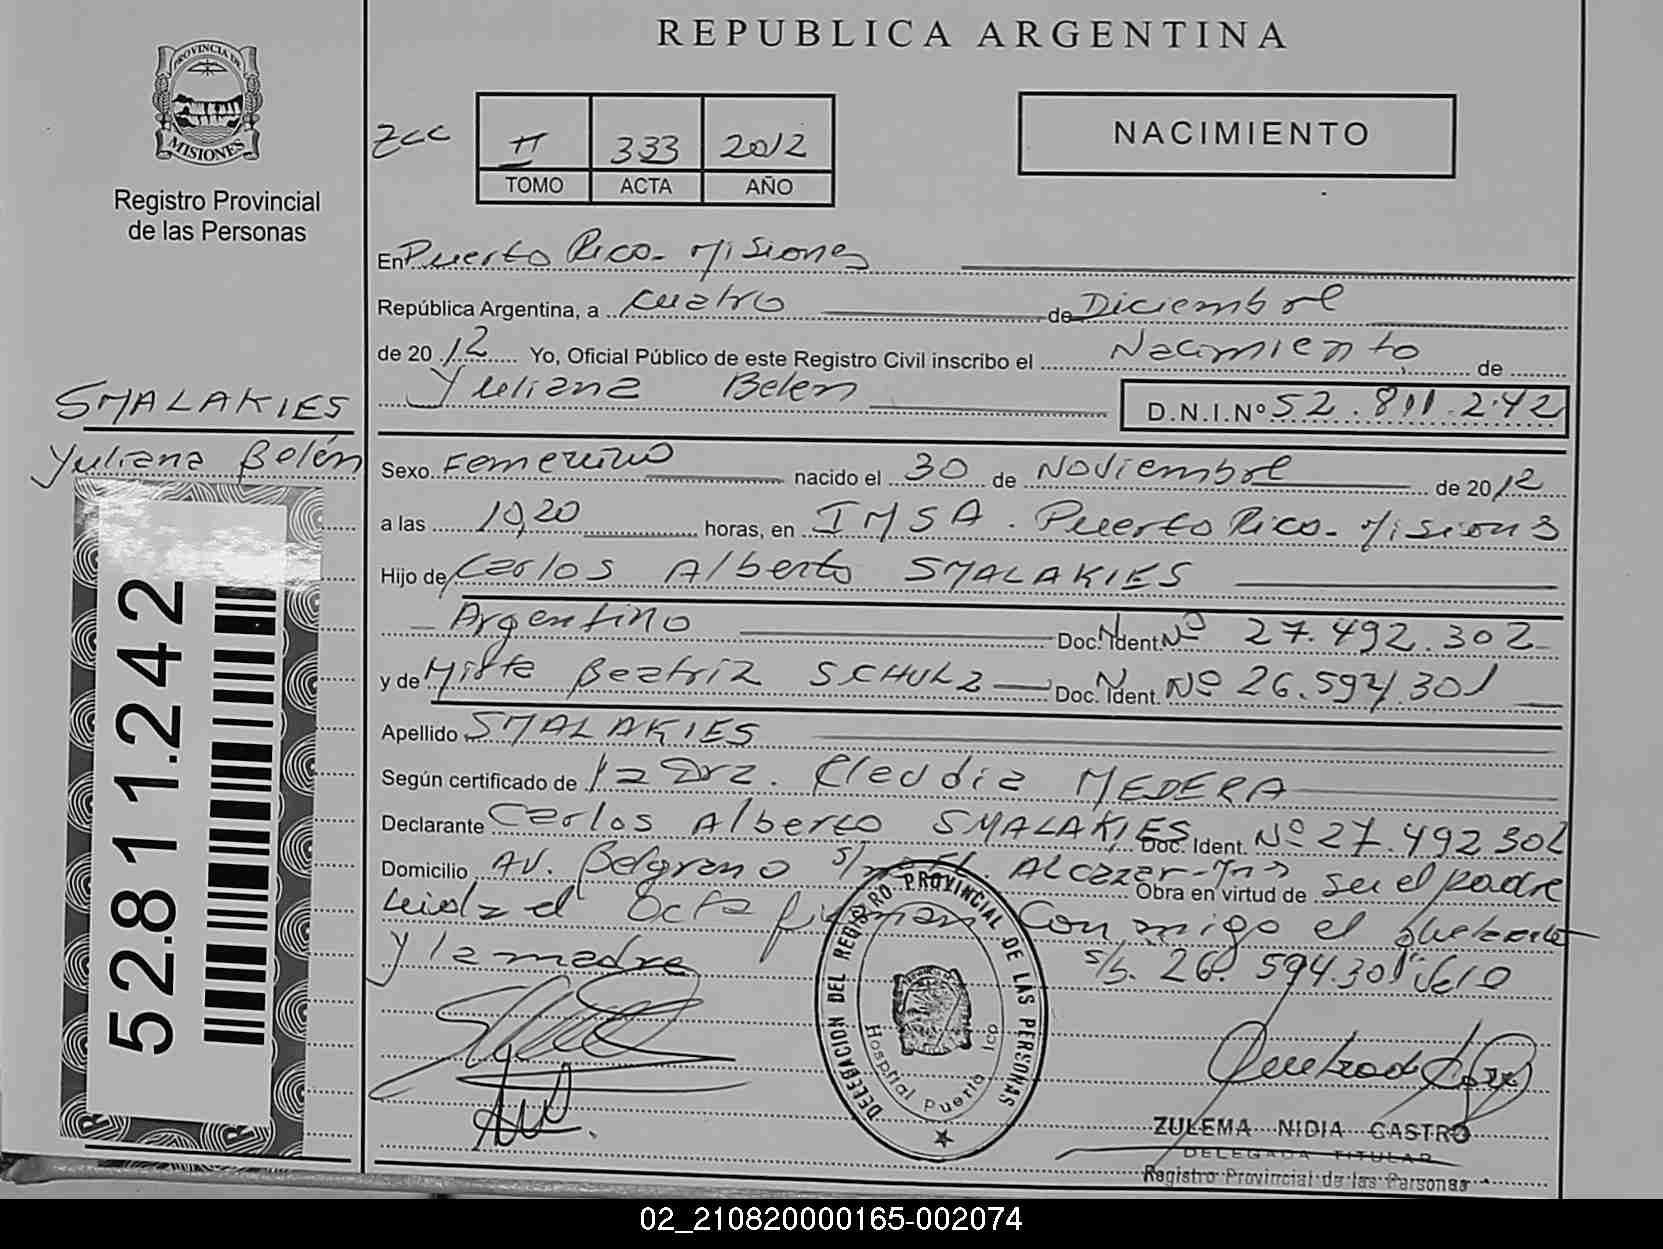 REPUBLICA ARGENTINA
PROVINCIA DE
MISIONES
Registro Provincial
de las Personas
Zcc
II 333 2012
TOMO ACTA AÑO
NACIMIENTO
En Puerto Rico - Misiones
República Argentina, a cuatro de Diciembre
de 2012 Yo, Oficial Público de este Registro Civil inscribo el Nacimiento de
Yuliana Belen D.N.I.Nº 52.811.242
SMALAKIES
Yuliana Belén
52.811.242
Sexo Femenino nacido el 30 de Noviembre de 2012
a las 10,20 horas, en IMSA. Puerto Rico - Misiones
Hijo de Carlos Alberto SMALAKIES
Argentino Doc. Ident. Nº 27.492.302
y de Mirta Beatriz SCHULZ Doc. Ident. Nº 26.594.301
Apellido SMALAKIES
Según certificado de la Dra. Claudia MEDERA
Declarante Carlos Alberto SMALAKIES Doc. Ident. Nº 27.492.302
Domicilio AV. Belgrano s/nº El Alcazar - Mnes Obra en virtud de ser el padre
Leida el Acta firman conmigo el
y la madre s/b. 26.594.301
DELEGACION DEL REGISTRO PROVINCIAL DE LAS PERSONAS
Hospital Puerto Rico
ZULEMA NIDIA CASTRO
DELEGADA TITULAR
Registro Provincial de las Personas
02_210820000165-002074